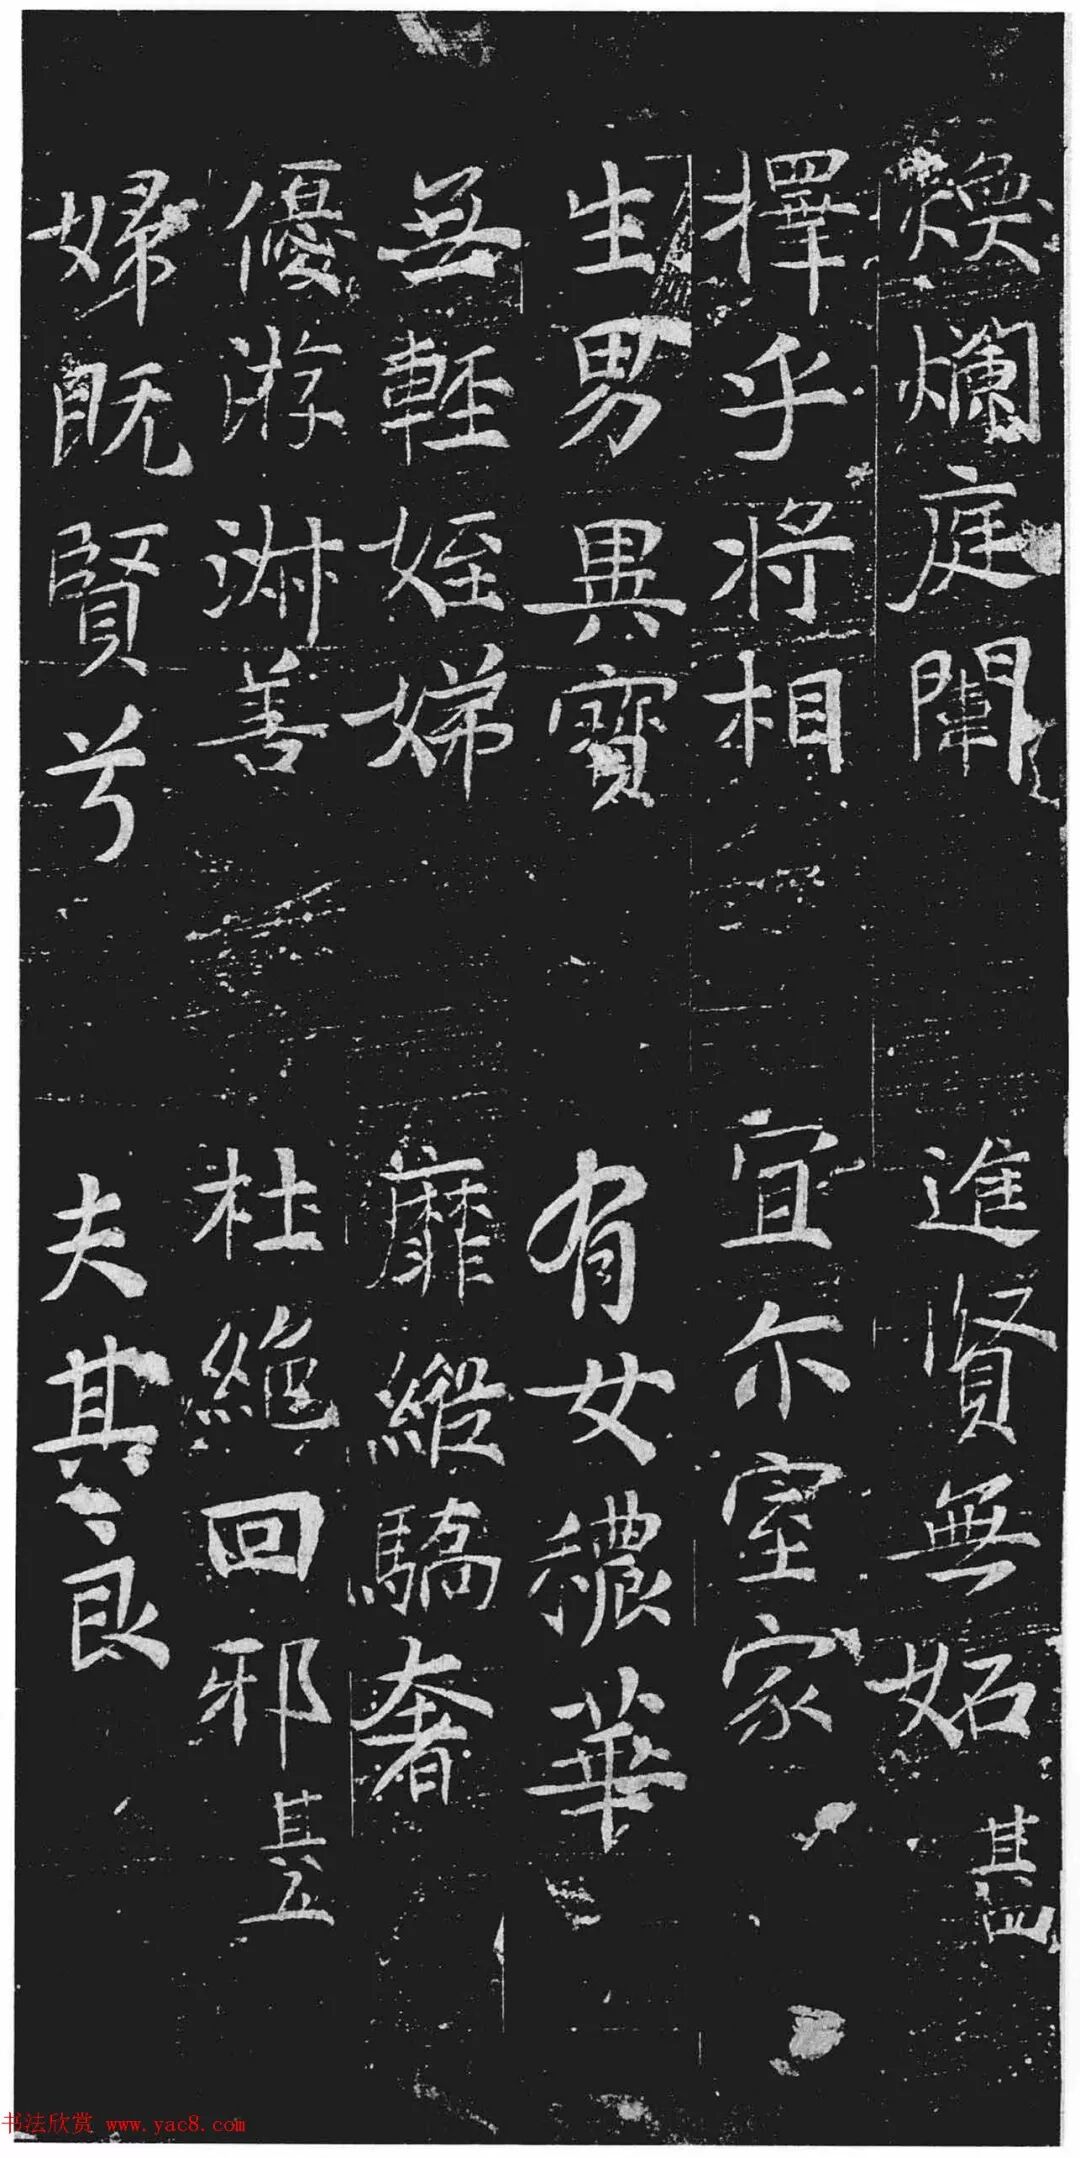 煥爛庭闈　進賢無妬其四
擇乎將相　宜尔室家
生男異寶　有女穠華
無輕姪娣　靡縱驕奢
優游淋善　杜絶回邪其五
婦既賢兮　夫其良
书法欣赏 www.yac8.com